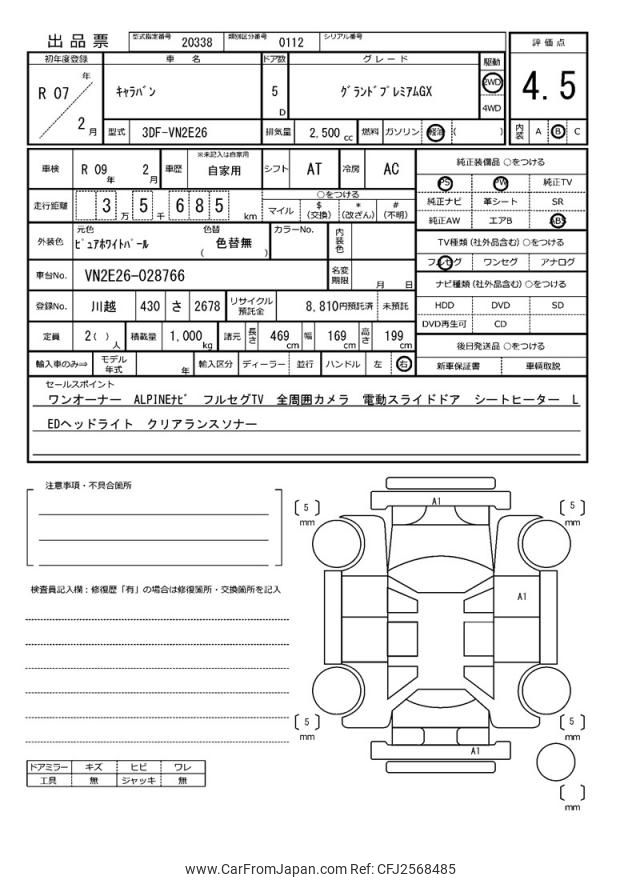 出品票 型式指定番号 20338 類別区分番号 0112 シリアル番号
初年度登録 車名 ドア数 グレード 駆動 評価点
R 07 年 2 月 キャラバン 5 D グランドプレミアムGX 2WD 4WD 4.5
型式 3DF-VN2E26 排気量 2,500 cc 燃料 ガソリン 軽油 ( ) 内装 A B C
車検 R 09 年 2 月 車歴 ※未記入は自家用 自家用 シフト AT 冷房 AC
走行距離 3 万 5 千 6 8 5 km ○をつける マイル $ (交換) * (改ざん) # (不明)
外装色 元色 ピュアホワイトパール 色替 ( 色替無 ) カラーNo. 内装色
車台No. VN2E26-028766 名変期限 月 日
登録No. 川越 430 さ 2678 リサイクル預託金 8,810円預託済 未預託
定員 2( ) 人 積載量 1,000 kg 諸元 長さ 469 cm 幅 169 cm 高さ 199 cm
輸入車のみ⇒ モデル年式 年 輸入区分 ディーラー 並行 ハンドル 左 右
純正装備品 ○をつける
PS PW 純正TV
純正ナビ 革シート SR
純正AW エアB ABS
TV種類 (社外品含む) ○をつける
フルセグ ワンセグ アナログ
ナビ種類 (社外品含む) ○をつける
HDD DVD SD
DVD再生可 CD
後日発送品 ○をつける
新車保証書 車輌取説
セールスポイント
ワンオーナー ALPINEナビ フルセグTV 全周囲カメラ 電動スライドドア シートヒーター L
EDヘッドライト クリアランスソナー
注意事項・不具合箇所
検査員記入欄：修復歴「有」の場合は修復箇所・交換箇所を記入
ドアミラー キズ ヒビ ワレ
工具 無 ジャッキ 無
A1
[ 5 ] mm
[ 5 ] mm
A1
[ 5 ] mm
[ 5 ] mm
A1
[ ] mm
www.CarFromJapan.com Ref: CFJ2568485